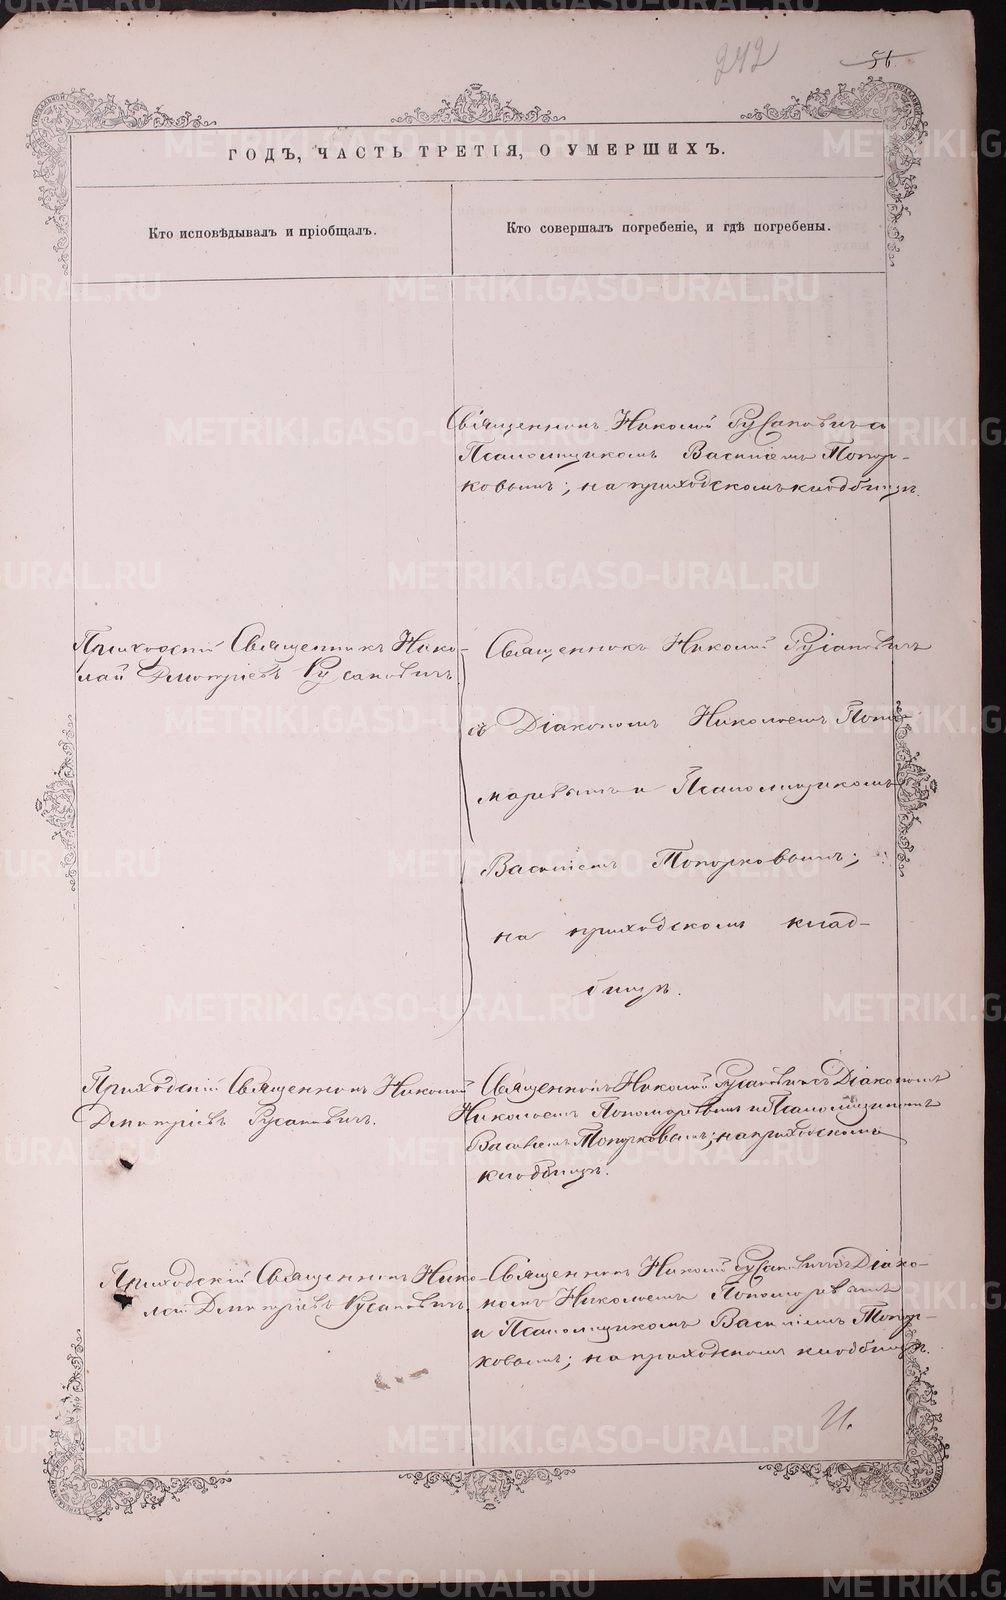 242
56
ГОДЪ, ЧАСТЬ ТРЕТІЯ, О УМЕРШИХЪ.
Кто исповѣдывалъ и пріобщалъ.
Кто совершалъ погребеніе, и гдѣ погребены.
Священникъ Николай Русановичъ съ
Псаломщикомъ Василіемъ Топор-
ковымъ; на приходскомъ кладбищѣ.
Приходскій Священникъ Нико-
лай Дмитріевъ Русановичъ.
Священникъ Николай Русановичъ
съ Діакономъ Николаемъ Поно-
маревымъ и Псаломщикомъ
Василіемъ Топорковымъ;
на приходскомъ клад-
бищѣ.
Приходскій Священникъ Николай
Дмитріевъ Русановичъ.
Священникъ Николай Русановичъ съ Діакономъ
Николаемъ Пономаревымъ и Псаломщикомъ
Василіемъ Топорковымъ; на приходскомъ
кладбищѣ.
Приходскій Священникъ Нико-
лай Дмитріевъ Русановичъ.
Священникъ Николай Русановичъ съ Діако-
номъ Николаемъ Пономаревымъ
и Псаломщикомъ Василіемъ Топор-
ковымъ; на приходскомъ кладбищѣ.
METRIKI.GASO-URAL.RU